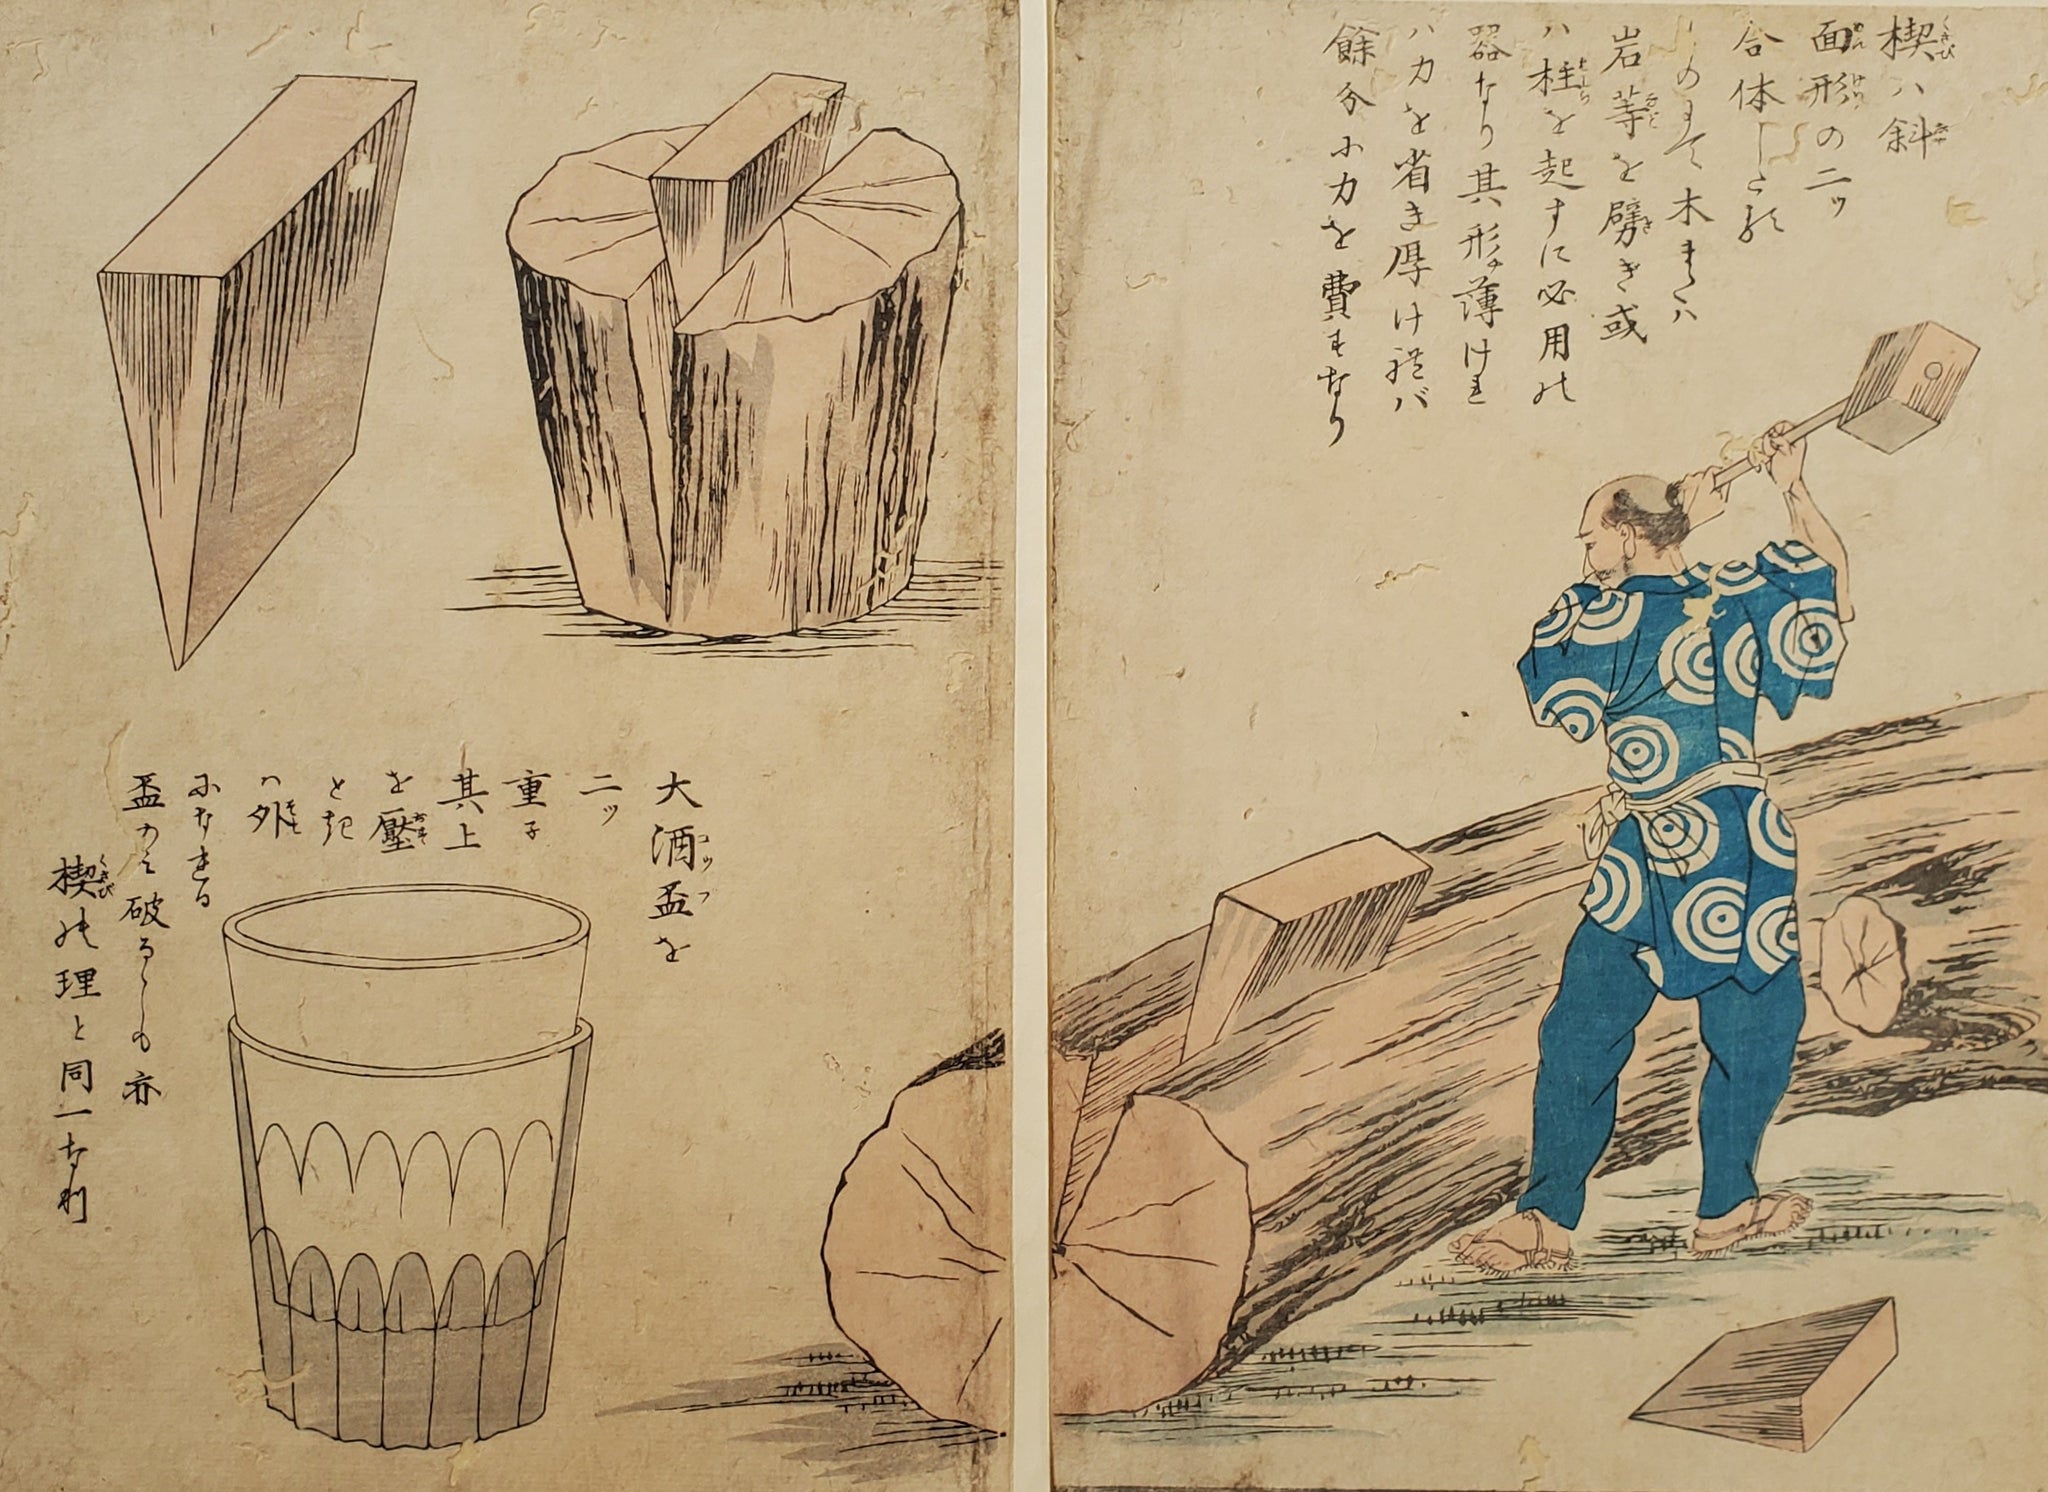 楔ハ斜
面形の二ッ
合体したる
ものにて木または
岩等を劈き或
ハ柱を起すに必用の
器なり其形薄けれ
ハ力を省き厚ければ
餘分に力を費すなり
大酒盃を
二ッ
重子
其上
を壓
とき
ハ外
になれる
盃のミ破るゝも亦
楔の理と同一なり